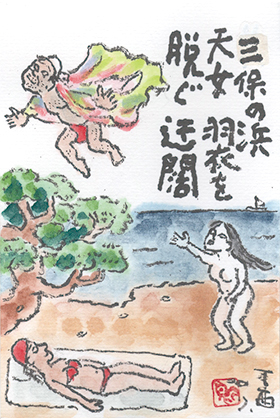 三保の浜
天女羽衣を
脱ぐ迂闊